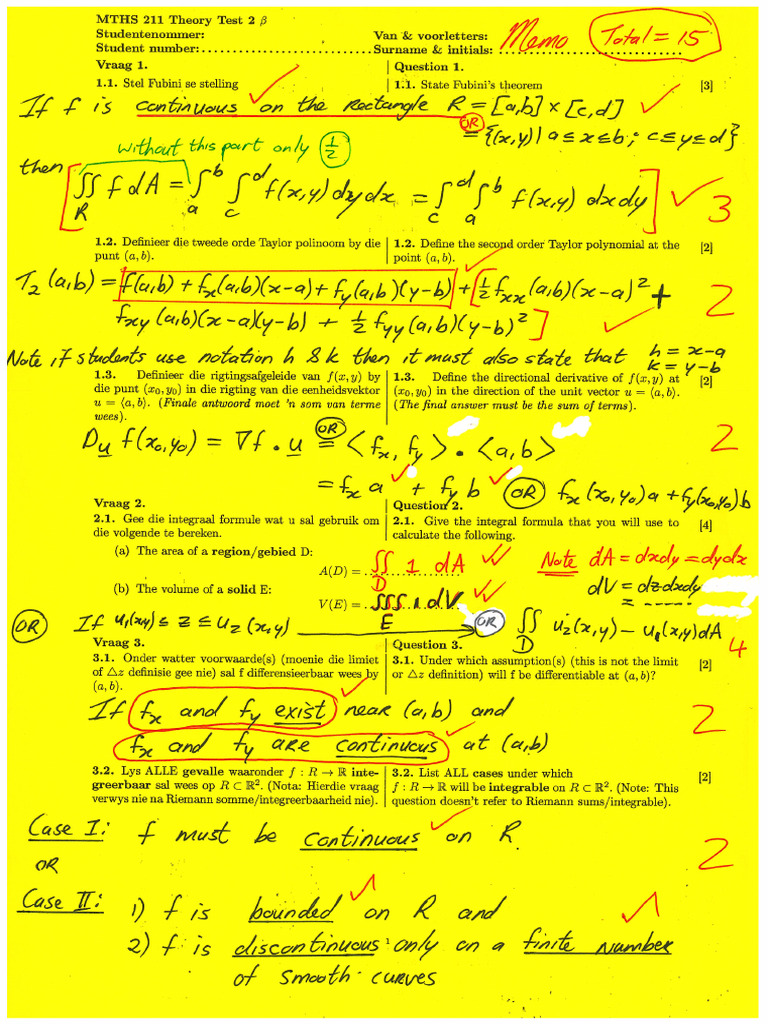 MTHS 211 Theory Test 2 β
Studentenommer:
Van & voorletters:
Student number:
Surname & initials:
Memo
Total = 15
Vraag 1.
Question 1.
1.1. Stel Fubini se stelling
1.1. State Fubini's theorem [3]
If f is continuous on the rectangle R = [a,b] × [c,d]
OR
= {(x,y) | a ≤ x ≤ b ; c ≤ y ≤ d}
without this part only ½
then
∬_R f dA = ∫_a^b ∫_c^d f(x,y) dy dx = ∫_c^d ∫_a^b f(x,y) dx dy
3
1.2. Definieer die tweede orde Taylor polinoom by die
punt (a, b).
1.2. Define the second order Taylor polynomial at the [2]
point (a, b).
T₂ (a,b) = f(a,b) + fx(a,b)(x-a) + fy(a,b)(y-b) + [½ fxx (a,b)(x-a)² +
fxy (a,b)(x-a)(y-b) + ½ fyy (a,b)(y-b)²]
2
Note if students use notation h & k then it must also state that h = x-a
k = y-b
1.3. Definieer die rigtingsafgeleide van f(x, y) by
die punt (x₀, y₀) in die rigting van die eenheidsvektor
u = ⟨a, b⟩. (Finale antwoord moet 'n som van terme
wees).
1.3. Define the directional derivative of f(x, y) at [2]
(x₀, y₀) in the direction of the unit vector u = ⟨a, b⟩.
(The final answer must be the sum of terms).
Du f(x₀,y₀) = ∇f · u OR = <fx, fy> · <a,b>
2
= fx a + fy b OR fx(x₀,y₀)a + fy(x₀,y₀)b
Vraag 2.
Question 2.
2.1. Gee die integraal formule wat u sal gebruik om
die volgende te bereken.
2.1. Give the integral formula that you will use to [4]
calculate the following.
(a) The area of a region/gebied D:
A(D) = ∬_D 1 dA
Note dA = dxdy = dydx
(b) The volume of a solid E:
dV = dzdxdy
V(E) = ∭_E 1 dV
OR If u₁(x,y) ≤ z ≤ u₂(x,y) OR ∬_D u₂(x,y) - u₁(x,y) dA
4
Vraag 3.
Question 3.
3.1. Onder watter voorwaarde(s) (moenie die limiet
of △z definisie gee nie) sal f differensieerbaar wees by
(a, b).
3.1. Under which assumption(s) (this is not the limit [2]
or △z definition) will f be differentiable at (a, b)?
If fx and fy exist near (a,b) and
fx and fy are continuous at (a,b)
2
3.2. Lys ALLE gevalle waaronder f : R → ℝ inte-
greerbaar sal wees op R ⊂ ℝ². (Nota: Hierdie vraag
verwys nie na Riemann somme/integreerbaarheid nie).
3.2. List ALL cases under which [2]
f : R → ℝ will be integrable on R ⊂ ℝ². (Note: This
question doesn't refer to Riemann sums/integrable).
Case I: f must be continuous on R.
2
OR
Case II: 1) f is bounded on R and
2) f is discontinuous only on a finite number
of smooth curves
1